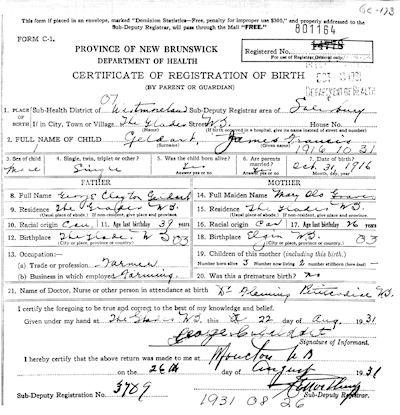 GC-173
This form if placed in an envelope, marked "Dominion Statistics—Free, penalty for improper use $300," and properly addressed to the
Sub-Deputy Registrar, will pass through the Mail "FREE."
801164
FORM C-1.
PROVINCE OF NEW BRUNSWICK
DEPARTMENT OF HEALTH
Registered No.
For use of Registrar General only
CERTIFICATE OF REGISTRATION OF BIRTH
(BY PARENT OR GUARDIAN)
OCT 1931
DEPARTMENT OF HEALTH
07
1. PLACE OF BIRTH
Sub-Health District of Westmorland Sub-Deputy Registrar area of Salisbury
If in City, Town or Village. The Glades Street N.B. House No.
(If birth occurred in a hospital, give its name instead of street and number)
2. FULL NAME OF CHILD Geldart, James Francis
1916 10 31
3. Sex of child Male
4. Single, twin, triplet or other? Single
5. Was the child born alive?
6. Are parents married?
7. Date of birth Oct. 31, 1916
FATHER
MOTHER
8. Full Name George Clayton Geldart
14. Full Maiden Name Mary
9. Residence The Glades N.B.
(Usual place of abode.) If non-resident, give place and province.
15. Residence The Glades N.B.
(Usual place of abode.) If non-resident, give place and province.
10. Racial origin Can.
11. Age last birthday 39 years
16. Racial origin Can
17. Age last birthday 26 years
12. Birthplace The Glades N B 03
(City or place, province or country)
18. Birthplace Elgin N.B. 03
(City or place, province or country)
13. Occupation:—
(a) Trade or profession Farmer
(b) Business in which employed Farming
19. Children of this mother (including this birth).
Number born alive 3 Number now living 2 number stillborn (here delivered)
20. Was this a premature birth? No
21. Name of Doctor, Nurse or other person in attendance at birth Dr Fleming Petitcodiac N.B.
I certify the foregoing to be true and correct to the best of my knowledge and belief.
Given under my hand at The Glades N.B. this 22 day of Aug. 1931
George C Geldart
Signature of Informant.
I hereby certify that the above return was made to me at Moncton N B
on the 26th day of August 1931
Sub-Deputy Registration No. 3789
Sub-Deputy Registrar.
1931 08 26